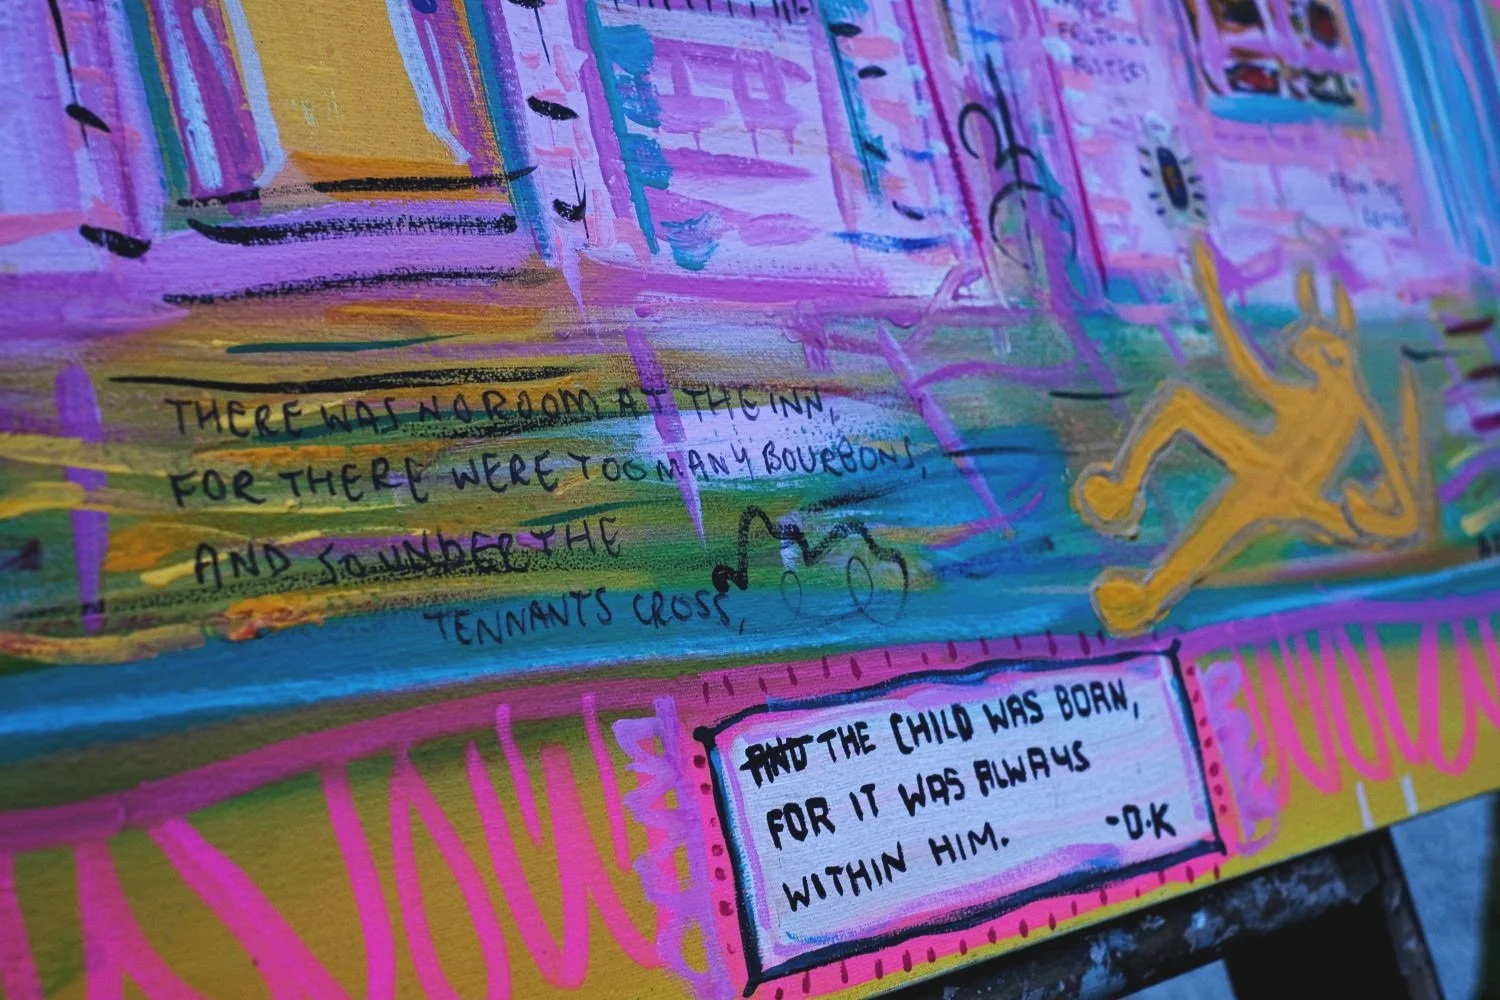 THERE WAS NO ROOM AT THE INN,
FOR THERE WERE TOO MANY BOURBONS,
AND SO UNDER THE
TENNANTS CROSS,
AND THE CHILD WAS BORN,
FOR IT WAS ALWAYS
WITHIN HIM. -O.K